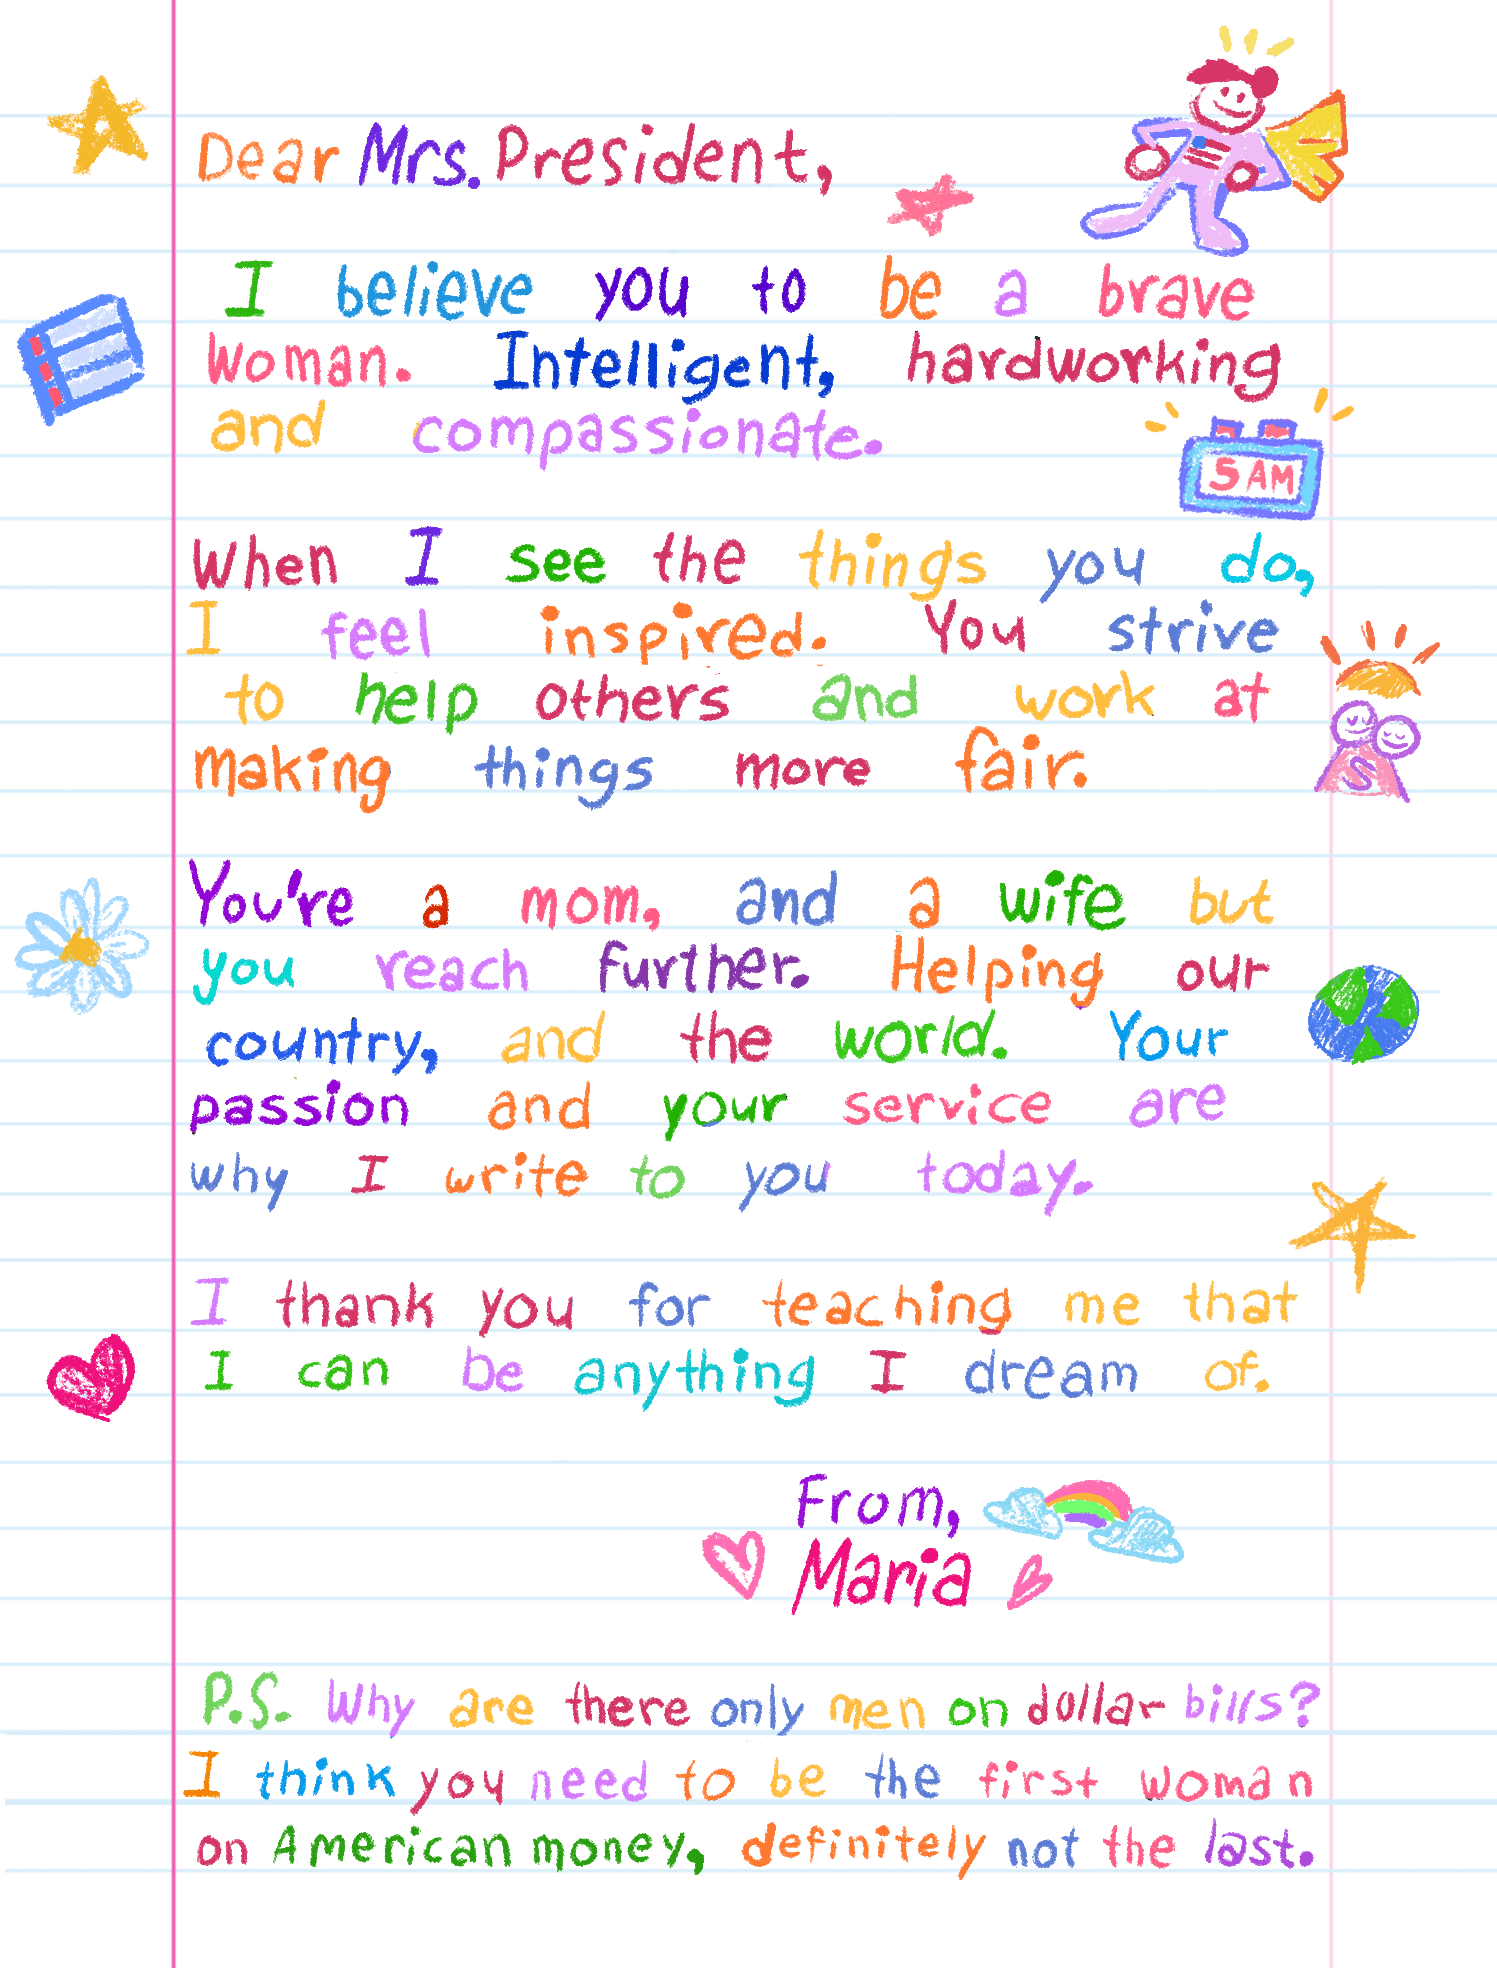 Dear Mrs. President,
I believe you to be a brave
woman. Intelligent, hardworking
and compassionate.
5 AM
When I see the things you do,
I feel inspired. You strive
to help others and work at
making things more fair.
S
You're a mom, and a wife but
you reach further. Helping our
country, and the world. Your
passion and your service are
why I write to you today.
I thank you for teaching me that
I can be anything I dream of.
From,
Maria
P.S. Why are there only men on dollar bills?
I think you need to be the first woman
on American money, definitely not the last.